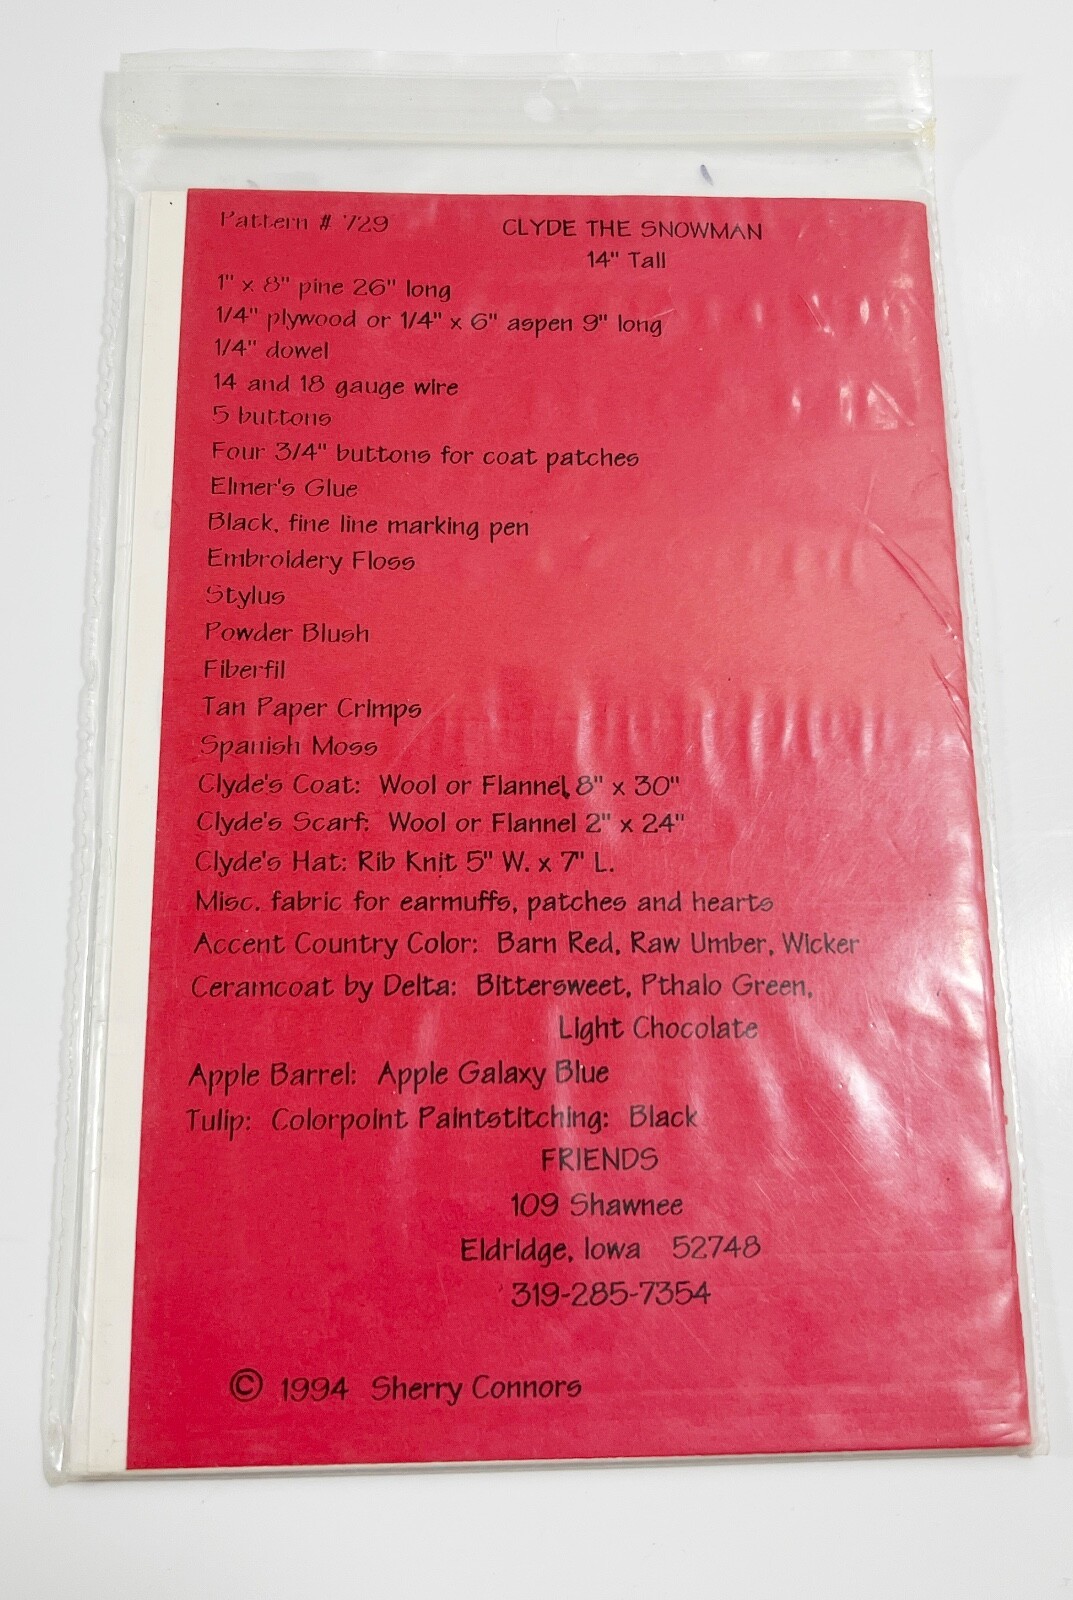 Pattern # 729
CLYDE THE SNOWMAN
14" Tall
1" x 8" pine 26" long
1/4" plywood or 1/4" x 6" aspen 9" long
1/4" dowel
14 and 18 gauge wire
5 buttons
Four 3/4" buttons for coat patches
Elmer's Glue
Black, fine line marking pen
Embroidery Floss
Stylus
Powder Blush
Fiberfil
Tan Paper Crimps
Spanish Moss
Clyde's Coat: Wool or Flannel, 8" x 30"
Clyde's Scarf: Wool or Flannel 2" x 24"
Clyde's Hat: Rib Knit 5" W. x 7" L.
Misc. fabric for earmuffs, patches and hearts
Accent Country Color: Barn Red, Raw Umber, Wicker
Ceramcoat by Delta: Bittersweet, Pthalo Green,
Light Chocolate
Apple Barrel: Apple Galaxy Blue
Tulip: Colorpoint Paintstitching: Black
FRIENDS
109 Shawnee
Eldridge, Iowa 52748
319-285-7354
© 1994 Sherry Connors